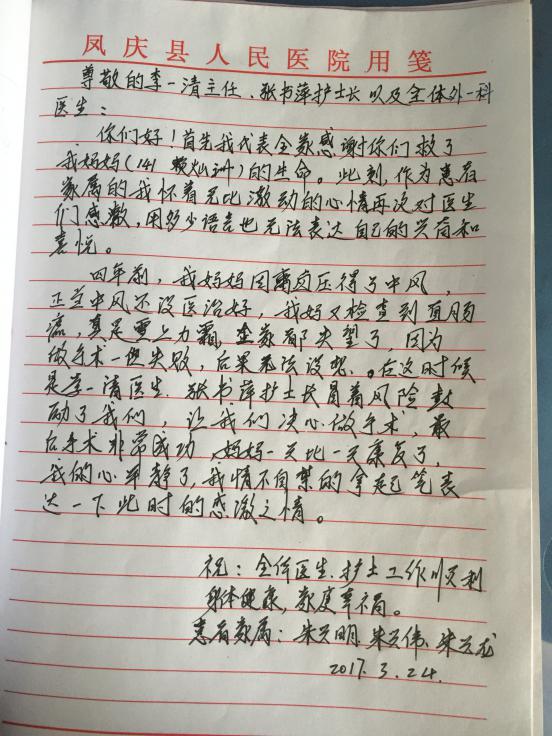 凤庆县人民医院用笺
尊敬的李一清主任、张书萍护士长以及全体外一科
医生：
你们好！首先我代表全家感谢你们救了
我妈妈（141）的生命。此刻，作为患者
家属的我怀着无比激动的心情再次对医生
们感激，用多少语言也无法表达自己的兴奋和
喜悦。
四年前，我妈妈因高血压得了中风，
正当中风还没医治好，我妈又检查到直肠
癌，真是雪上力霜，全家都失望了，因为
做手术一但失败，后果无法设想。在这时候
是李一清医生、张书萍护士长冒着风险鼓
励了我们，让我们决心做手术，最
后手术非常成功，妈妈一天比一天康复了，
我的心平静了，我情不自禁的拿起笔表
达一下此时的感激之情。
祝：全体医生、护士工作顺利
身体健康，家庭幸福。
患者家属：朱兴明、朱兴伟、朱兴龙
2017.3.24.